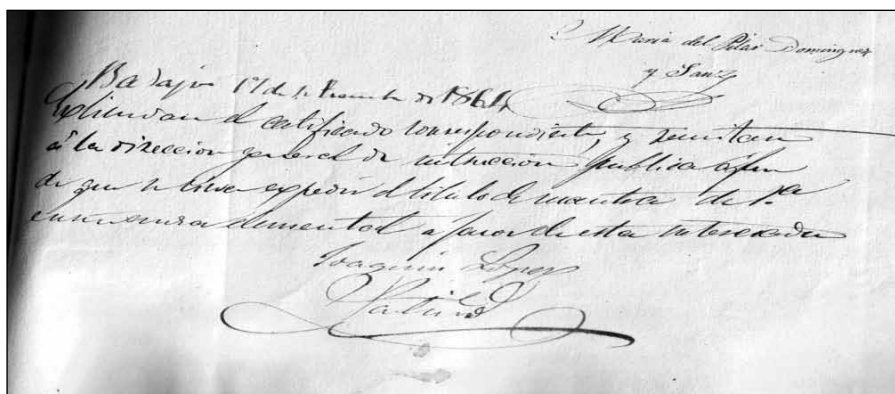 Maria del Pilar Dominguez
y Sanz
Badajoz 17 de de 1864
Estiendan el certificado correspondiente, y remitan
á la direccion general de instruccion publica afin
de que se sirva expedir el titulo de maestra de 1.ª
enseñanza elemental a favor de esta interesada
Joaquin Lopez
Patiño